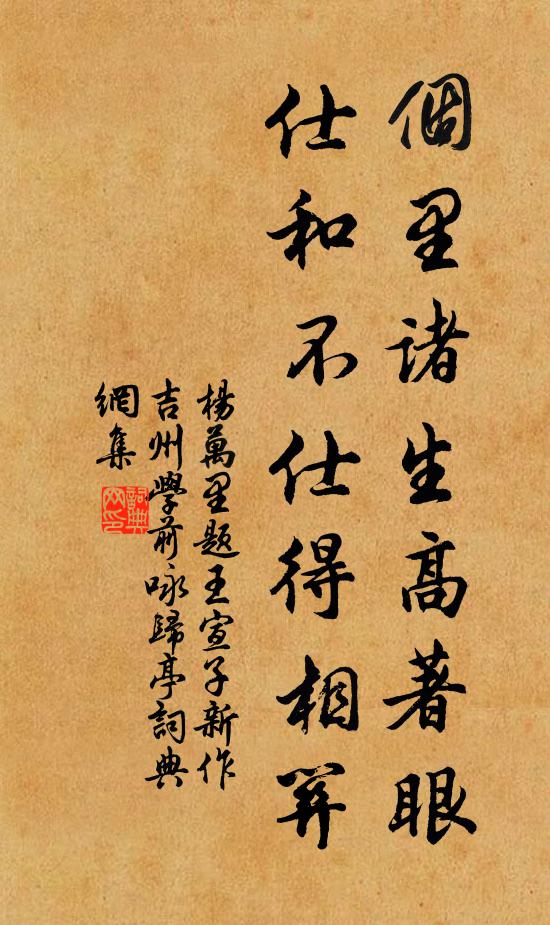 個里諸生高著眼
仕和不仕得相關
楊萬里題王宣子新作
吉州學前咏歸亭詞典
網集
詞典網印